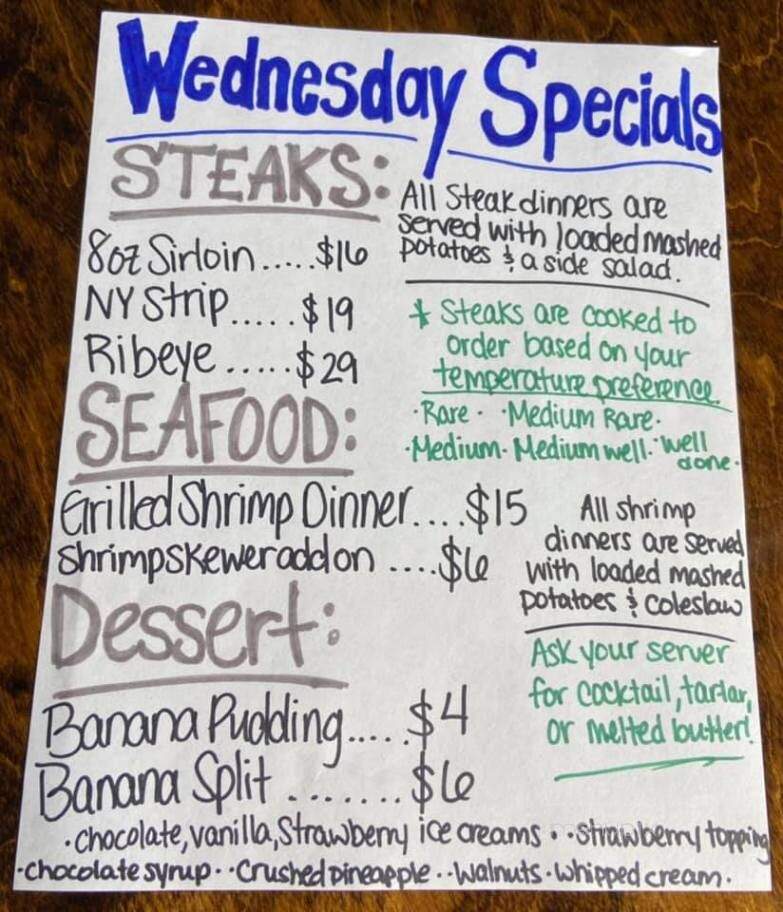 Wednesday Specials
STEAKS:
8oz Sirloin.....$16
NY Strip.....$19
Ribeye.....$29
All Steak dinners are
served with loaded mashed
potatoes & a side salad.
* Steaks are cooked to
order based on your
temperature preference.
·Rare· ·Medium Rare·
·Medium· Medium well· ·well
done·
SEAFOOD:
Grilled Shrimp Dinner....$15
Shrimp skewer add on ....$6
All shrimp
dinners are served
with loaded mashed
potatoes & coleslaw
Ask your server
for cocktail, tartar,
or melted butter!
Dessert:
Banana Pudding.....$4
Banana Split .......$6
·chocolate, vanilla, Strawberry ice creams · ·strawberry topping
·chocolate syrup· ·Crushed pineapple· ·walnuts·whipped cream·